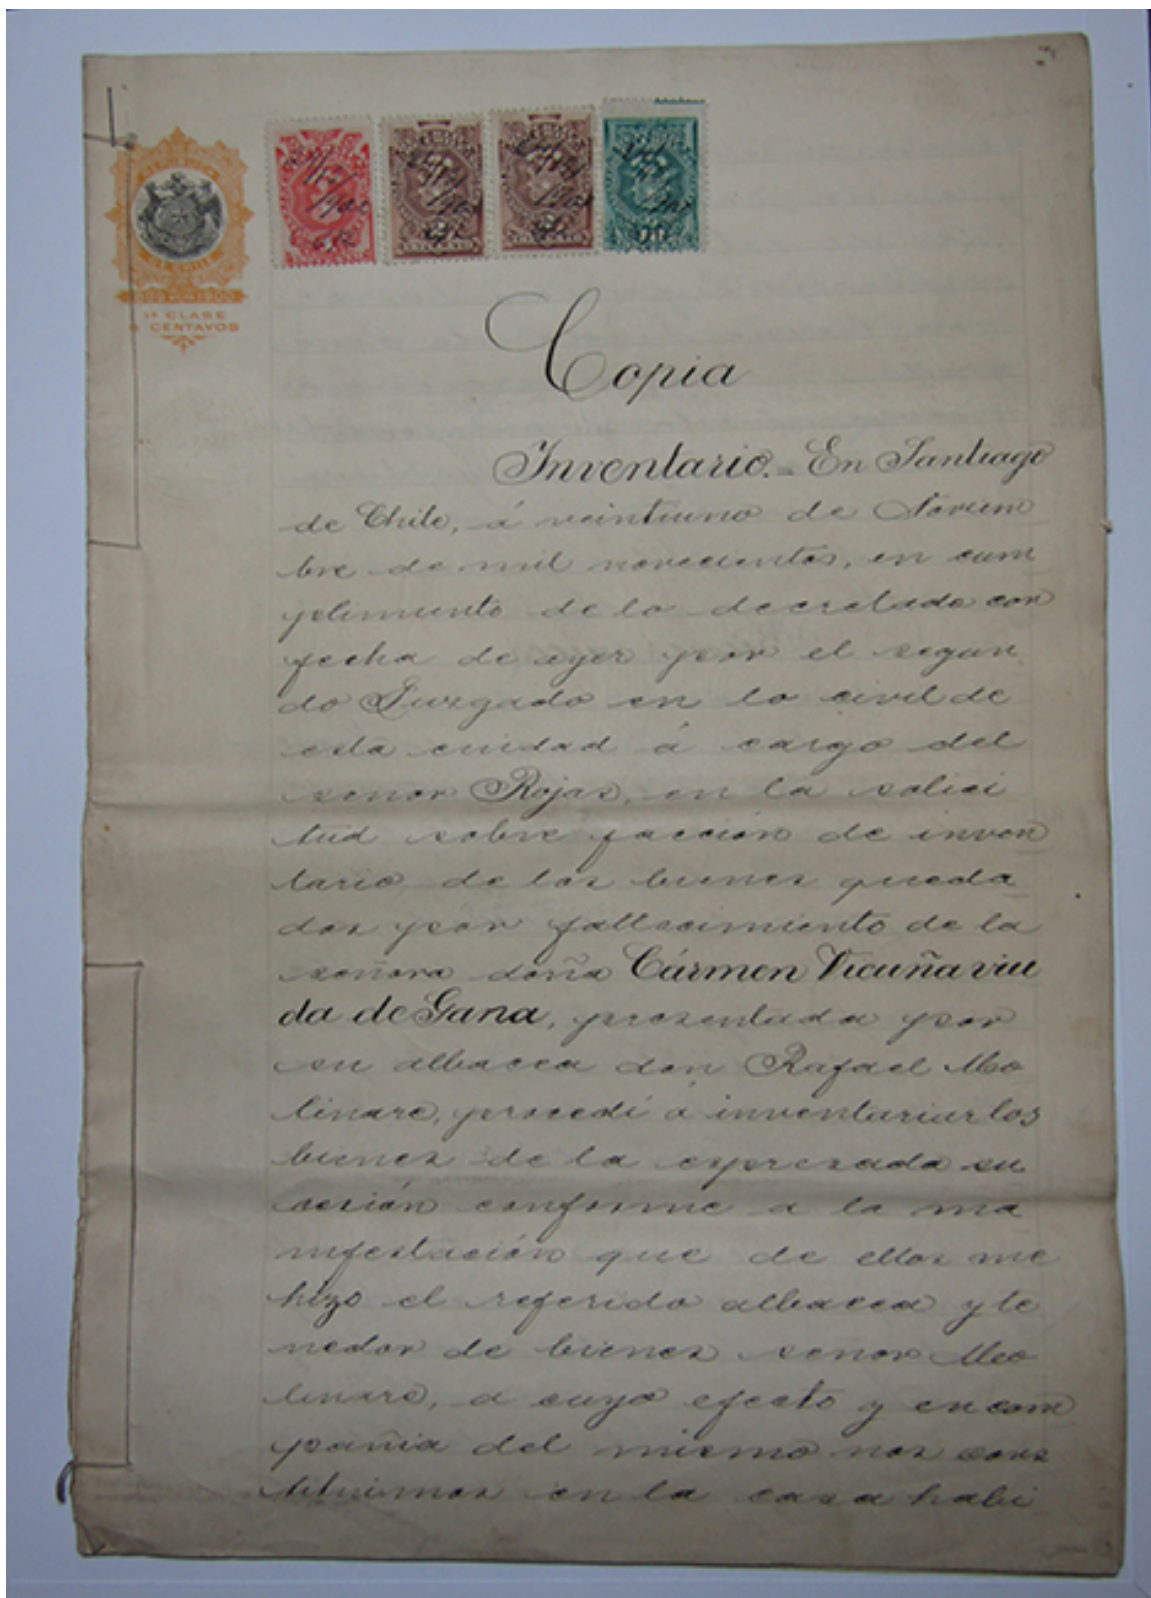 REPUBLICA
DE CHILE
1900
1ª CLASE
5 CENTAVOS
Copia
Inventario. = En Santiago
de Chile, á veintiuno de Noviem
bre de mil novecientos, en cum
plimiento de lo decretado con
fecha de ayer por el segun
do Juzgado en lo civil de
esta ciudad á cargo del
senor Rojas, en la solici
tud sobre facción de inven
tario de los bienes queda
dos por fallecimiento de la
señora doña Cármen Vicuña viu
da de Gana, presentada por
su albacea don Rafael Mo
linare, procedí á inventariar los
bienes de la espresada su
cesión conforme a la ma
nifestación que de ellos me
hizo el referido albacea y te
nedor de bienes senor Mo
linare, a cuyo efecto y en com
pañia del mismo nos cons
tituimos en la casa habi